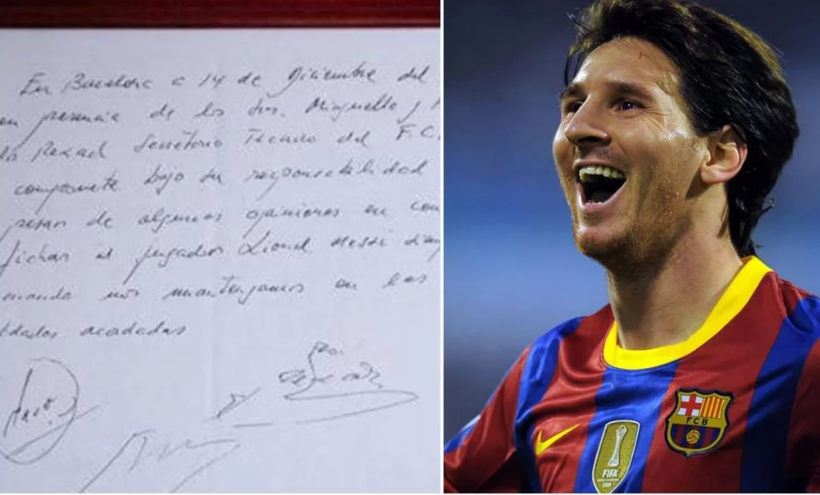 En Barcelona a 14 de Diciembre del
en presencia de los Srs. Minguella y
Rexach Secretario Técnico del F.C.
compromete bajo su responsabilidad
pesar de algunas opiniones en con
fichar al jugador Lionel Messi
cuando nos mantengamos en las
tidades acordadas
FCB
FIFA